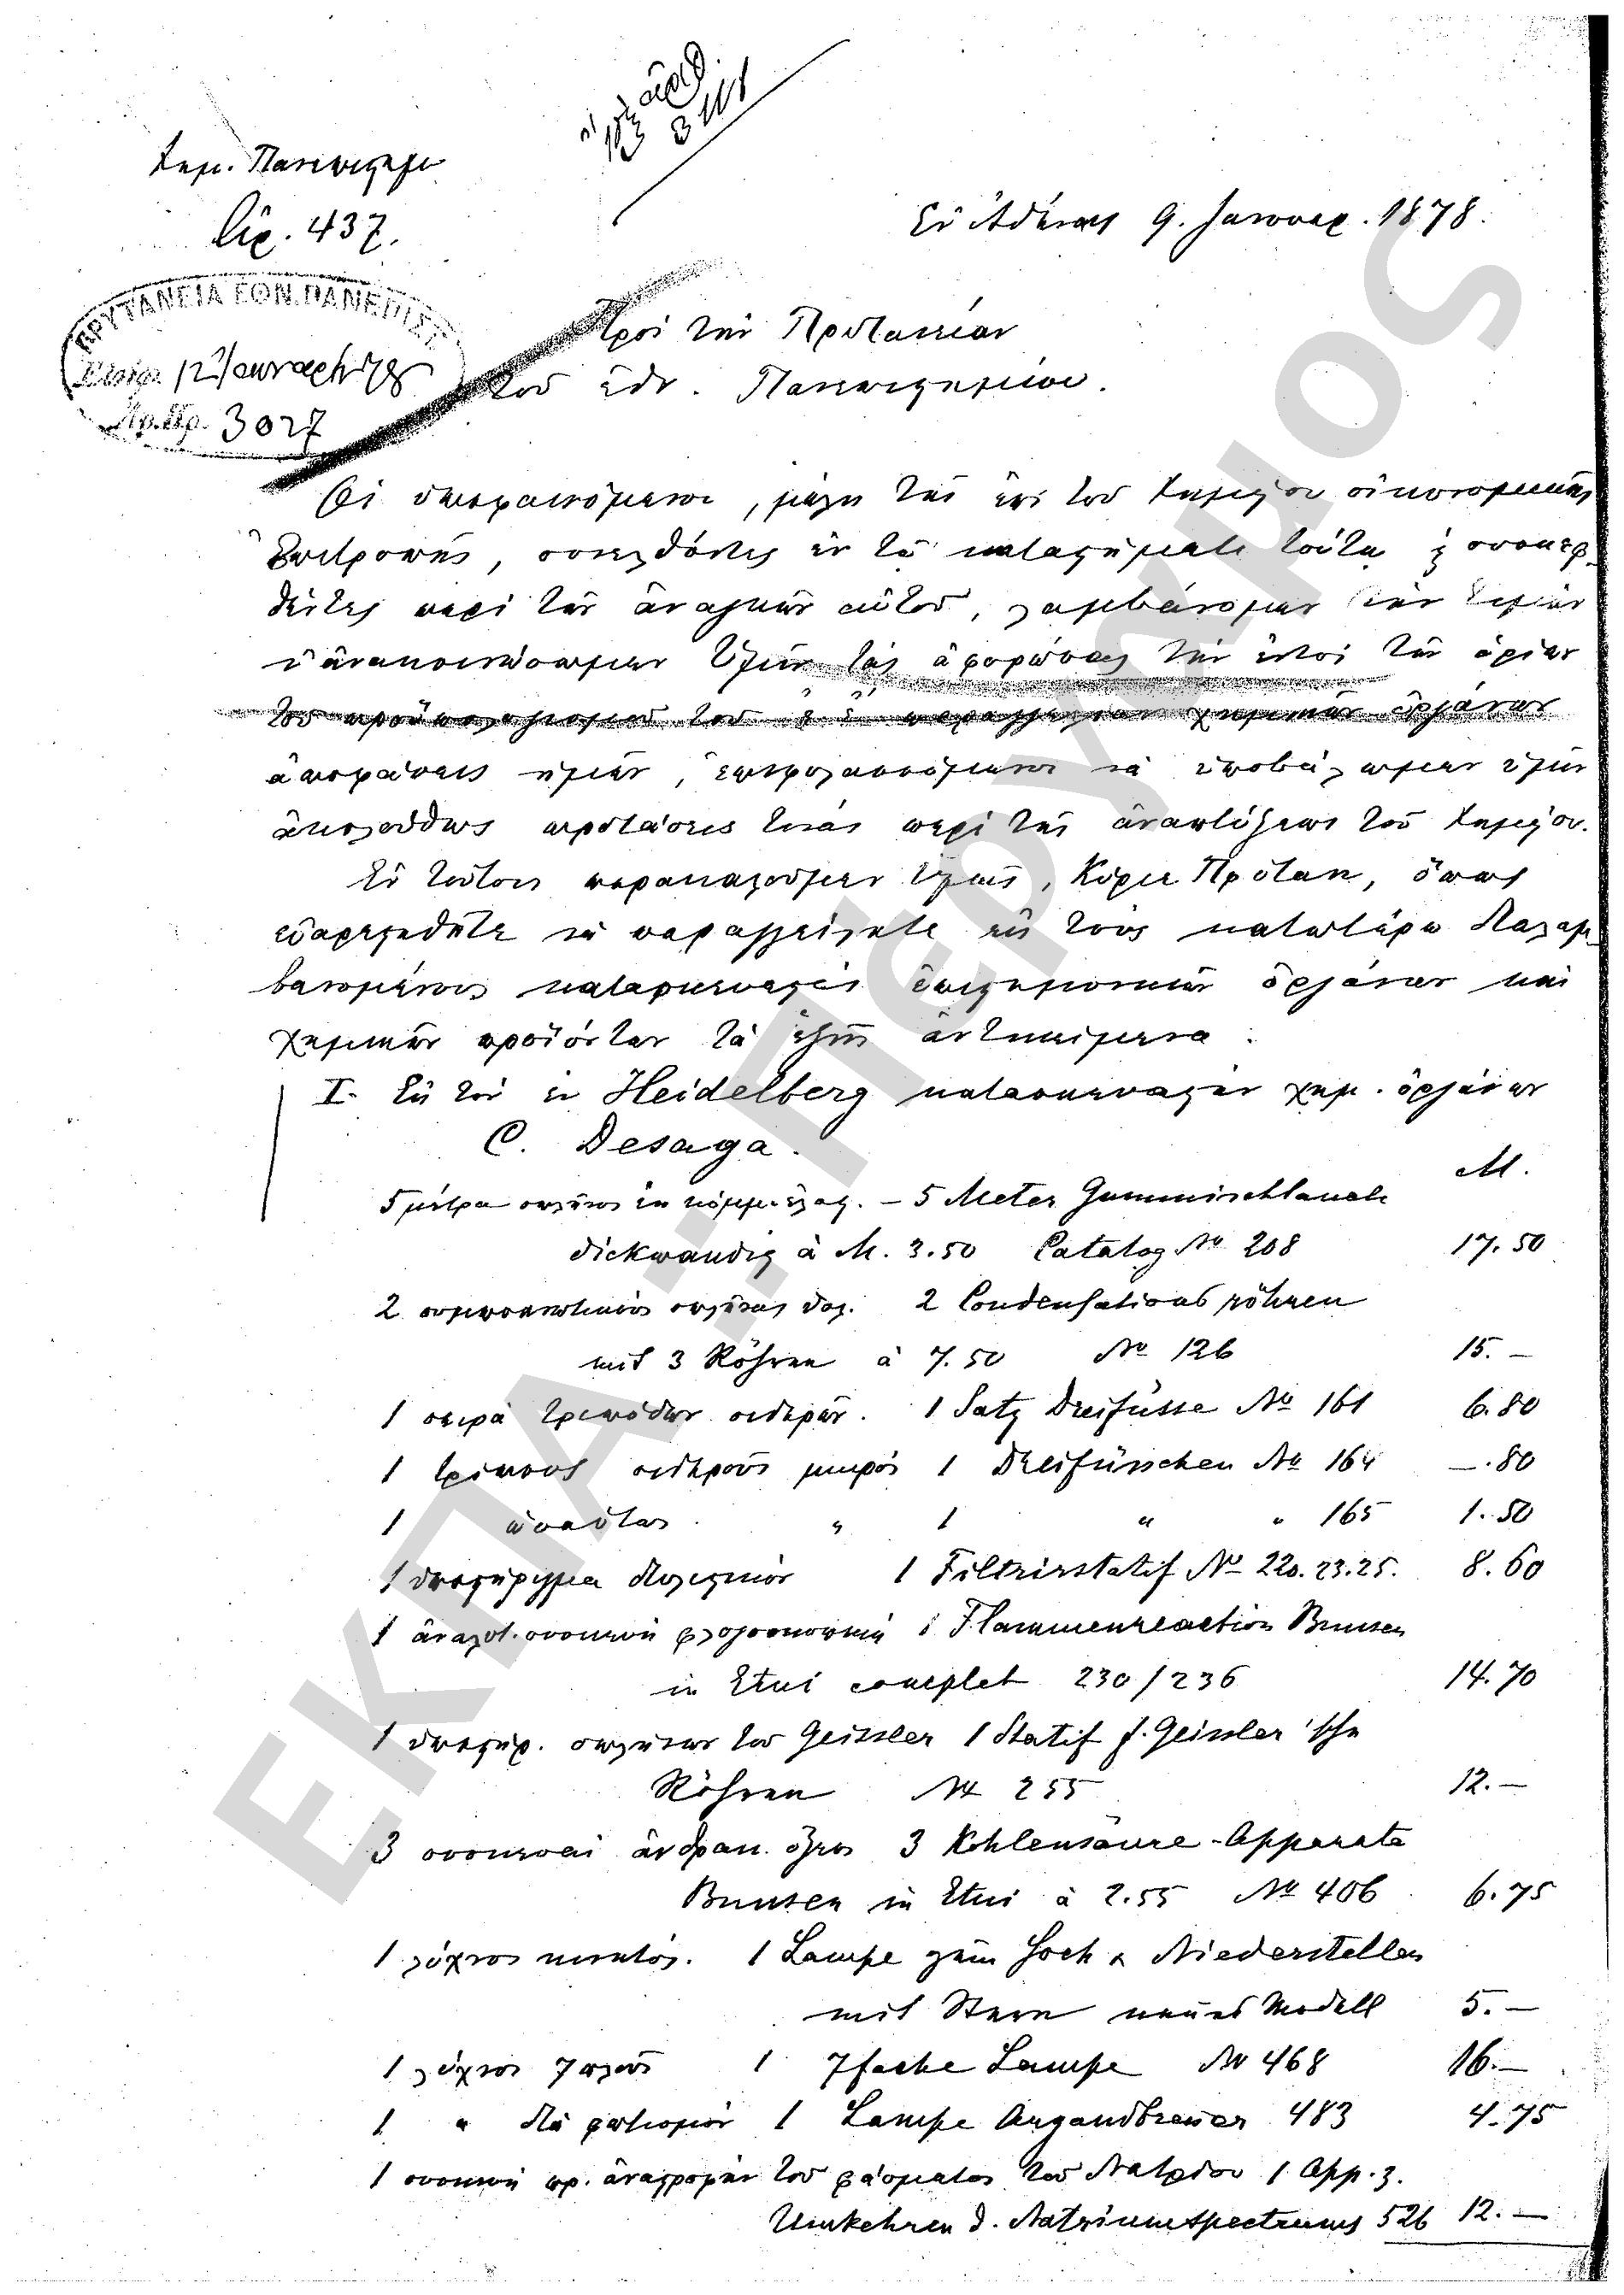 Χημ. Πανεπιστημ
Ἀρ. 437.
Ἐν Ἀθήναις 9. Ἰανουαρ. 1878.
ΠΡΥΤΑΝΕΙΑ ΕΘΝ. ΠΑΝΕΠΙΣΤ
12 Ἰανουαρ 78
Ἀρ. Πρ. 3027
Πρὸς τὴν Πρυτανείαν
τοῦ ἐθν. Πανεπιστημίου.
Οἱ ὑποφαινόμενοι, μέλη τῆς ἐπὶ τοῦ Χημείου οἰκονομικῆς
Ἐπιτροπῆς, συνελθόντες ἐν τῷ καταστήματι τούτῳ ϗ συσκεφ-
θέντες περὶ τῶν ἀναγκῶν αὐτοῦ, λαμβάνομεν τὴν τιμὴν
ν' ἀνακοινώσωμεν Ὑμῖν τὰς ἀφορώσας τὴν ἐντὸς τῶν ὁρίων
τοῦ προϋπολογισμοῦ τοῦ ἐ. ἔ. παραγγελίαν χημικῶν ὀργάνων
ἀποφάσεις ἡμῶν, ἐπιφυλασσόμενοι νὰ ὑποβάλωμεν ὑμῖν
ἀκολούθως προτάσεις τινὰς περὶ τῆς ἀναπτύξεως τοῦ Χημείου.
Ἐν τούτοις παρακαλοῦμεν Ὑμᾶς, Κύριε Πρύτανι, ὅπως
εὐαρεστηθῆτε νὰ παραγγείλητε εἰς τοὺς κατωτέρω διαλαμ-
βανομένους κατασκευαστὰς ἐπιστημονικῶν ὀργάνων καὶ
χημικῶν προϊόντων τὰ ἑξῆς ἀντικείμενα:
I. Εἰς τὸν ἐν Heidelberg κατασκευαστὴν χημ. ὀργάνων
C. Desaga.
M.
5 μέτρα σωλῆνος ἐκ κόμμι ἐλαστ. – 5 Meter Gummischlauch
dickwandig à M. 3.50 Catalog No 208 17.50
2 συμπυκνωτικοὺς σωλῆνας ὑαλ. 2 Condensationsröhren
mit 3 Röhren à 7.50 No 126 15.–
1 σειρὰ τριπόδων σιδηρῶν. 1 Satz Dreifüsse No 161 6.80
1 τρίπους σιδηροῦς μικρός 1 Dreifüsschen No 164 –.80
1 ὡσαύτως " 1 " " 165 1.50
1 ὑποστήριγμα διυλιστικόν 1 Filtrirstatif No 220.23.25. 8.60
1 ἀναλυτ. συσκευὴ φλογοσκοπική 1 Flammenreaction Bunsen
in Etui complet 230/236 14.70
1 ὑποστήρ. σωλήνων τοῦ Geissler 1 Statif f. Geissler'sche
Röhren No 255 12.–
3 συσκευαὶ ἀνθρακ. ὀξέος 3 Kohlensäure-Apparate
Bunsen in Etui à 2.55 No 406 6.75
1 λύχνος κινητός. 1 Lampe zum Hoch & Niederstellen
mit Stern neues Modell 5.–
1 λύχνος 7πλοῦς 1 7fache Lampe No 468 16.–
1 " διὰ φωτισμόν 1 Lampe Argandbrenner 483 4.75
1 συσκευὴ πρ. ἀναστροφὴν τοῦ φάσματος τοῦ Νατρίου 1 App. z.
Umkehren d. Natriumspectrums 526 12.–
ΕΚΠΑ...ΤΕΡΥΚΟΣ